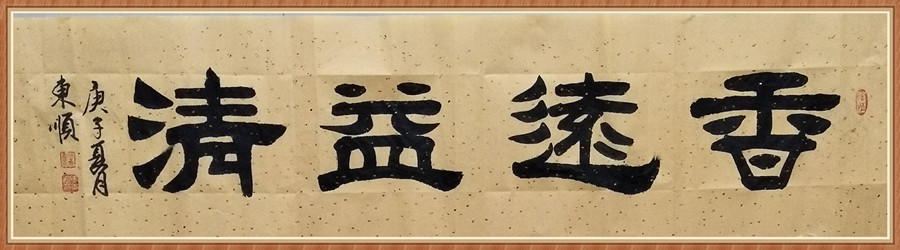 香遠益清
庚子夏月
東順